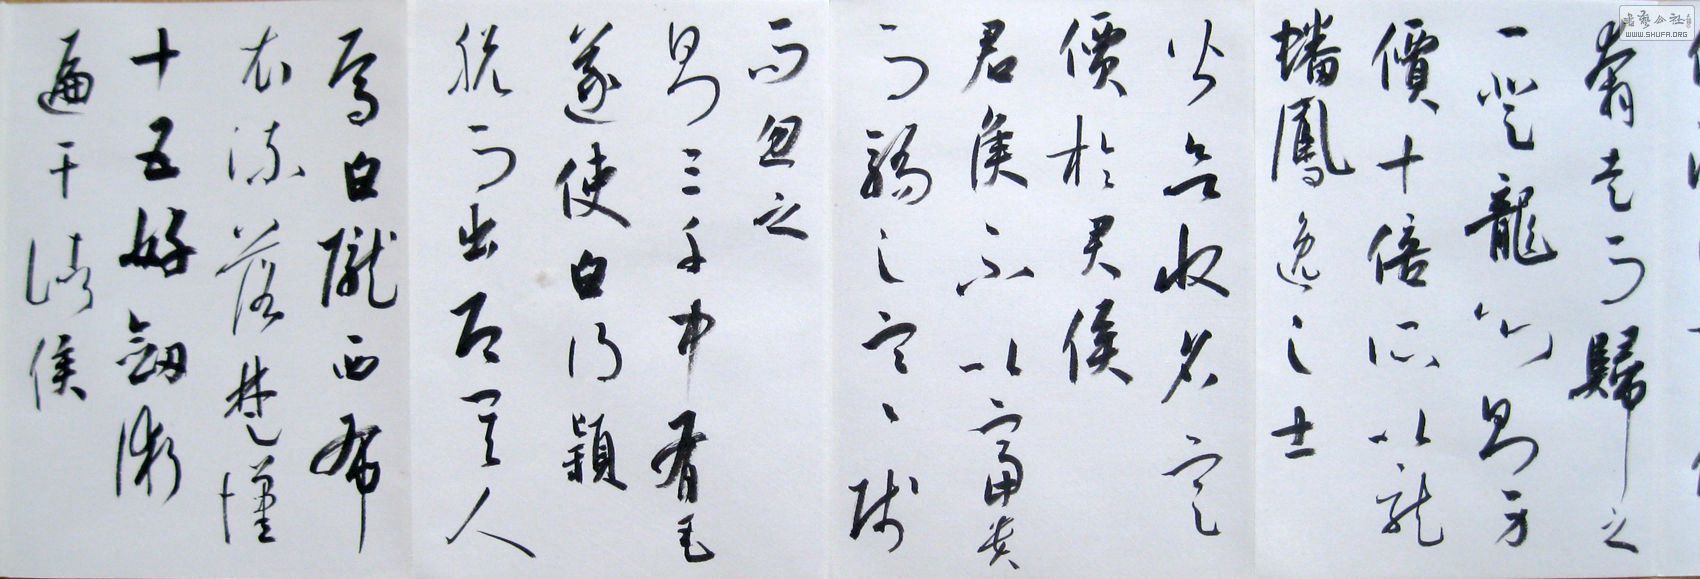 奔走而歸之
一登龍門則声
價十倍所以龍
蟠鳳逸之士
皆欲收名定
價於君侯
君侯不以富貴
而驕之寒賤
而忽之
則三千中有毛
遂使白得穎
脱而出即其人
焉白隴西布
衣流落楚漢
十五好劍術
遍干諸侯
WWW.SHUFA.ORG